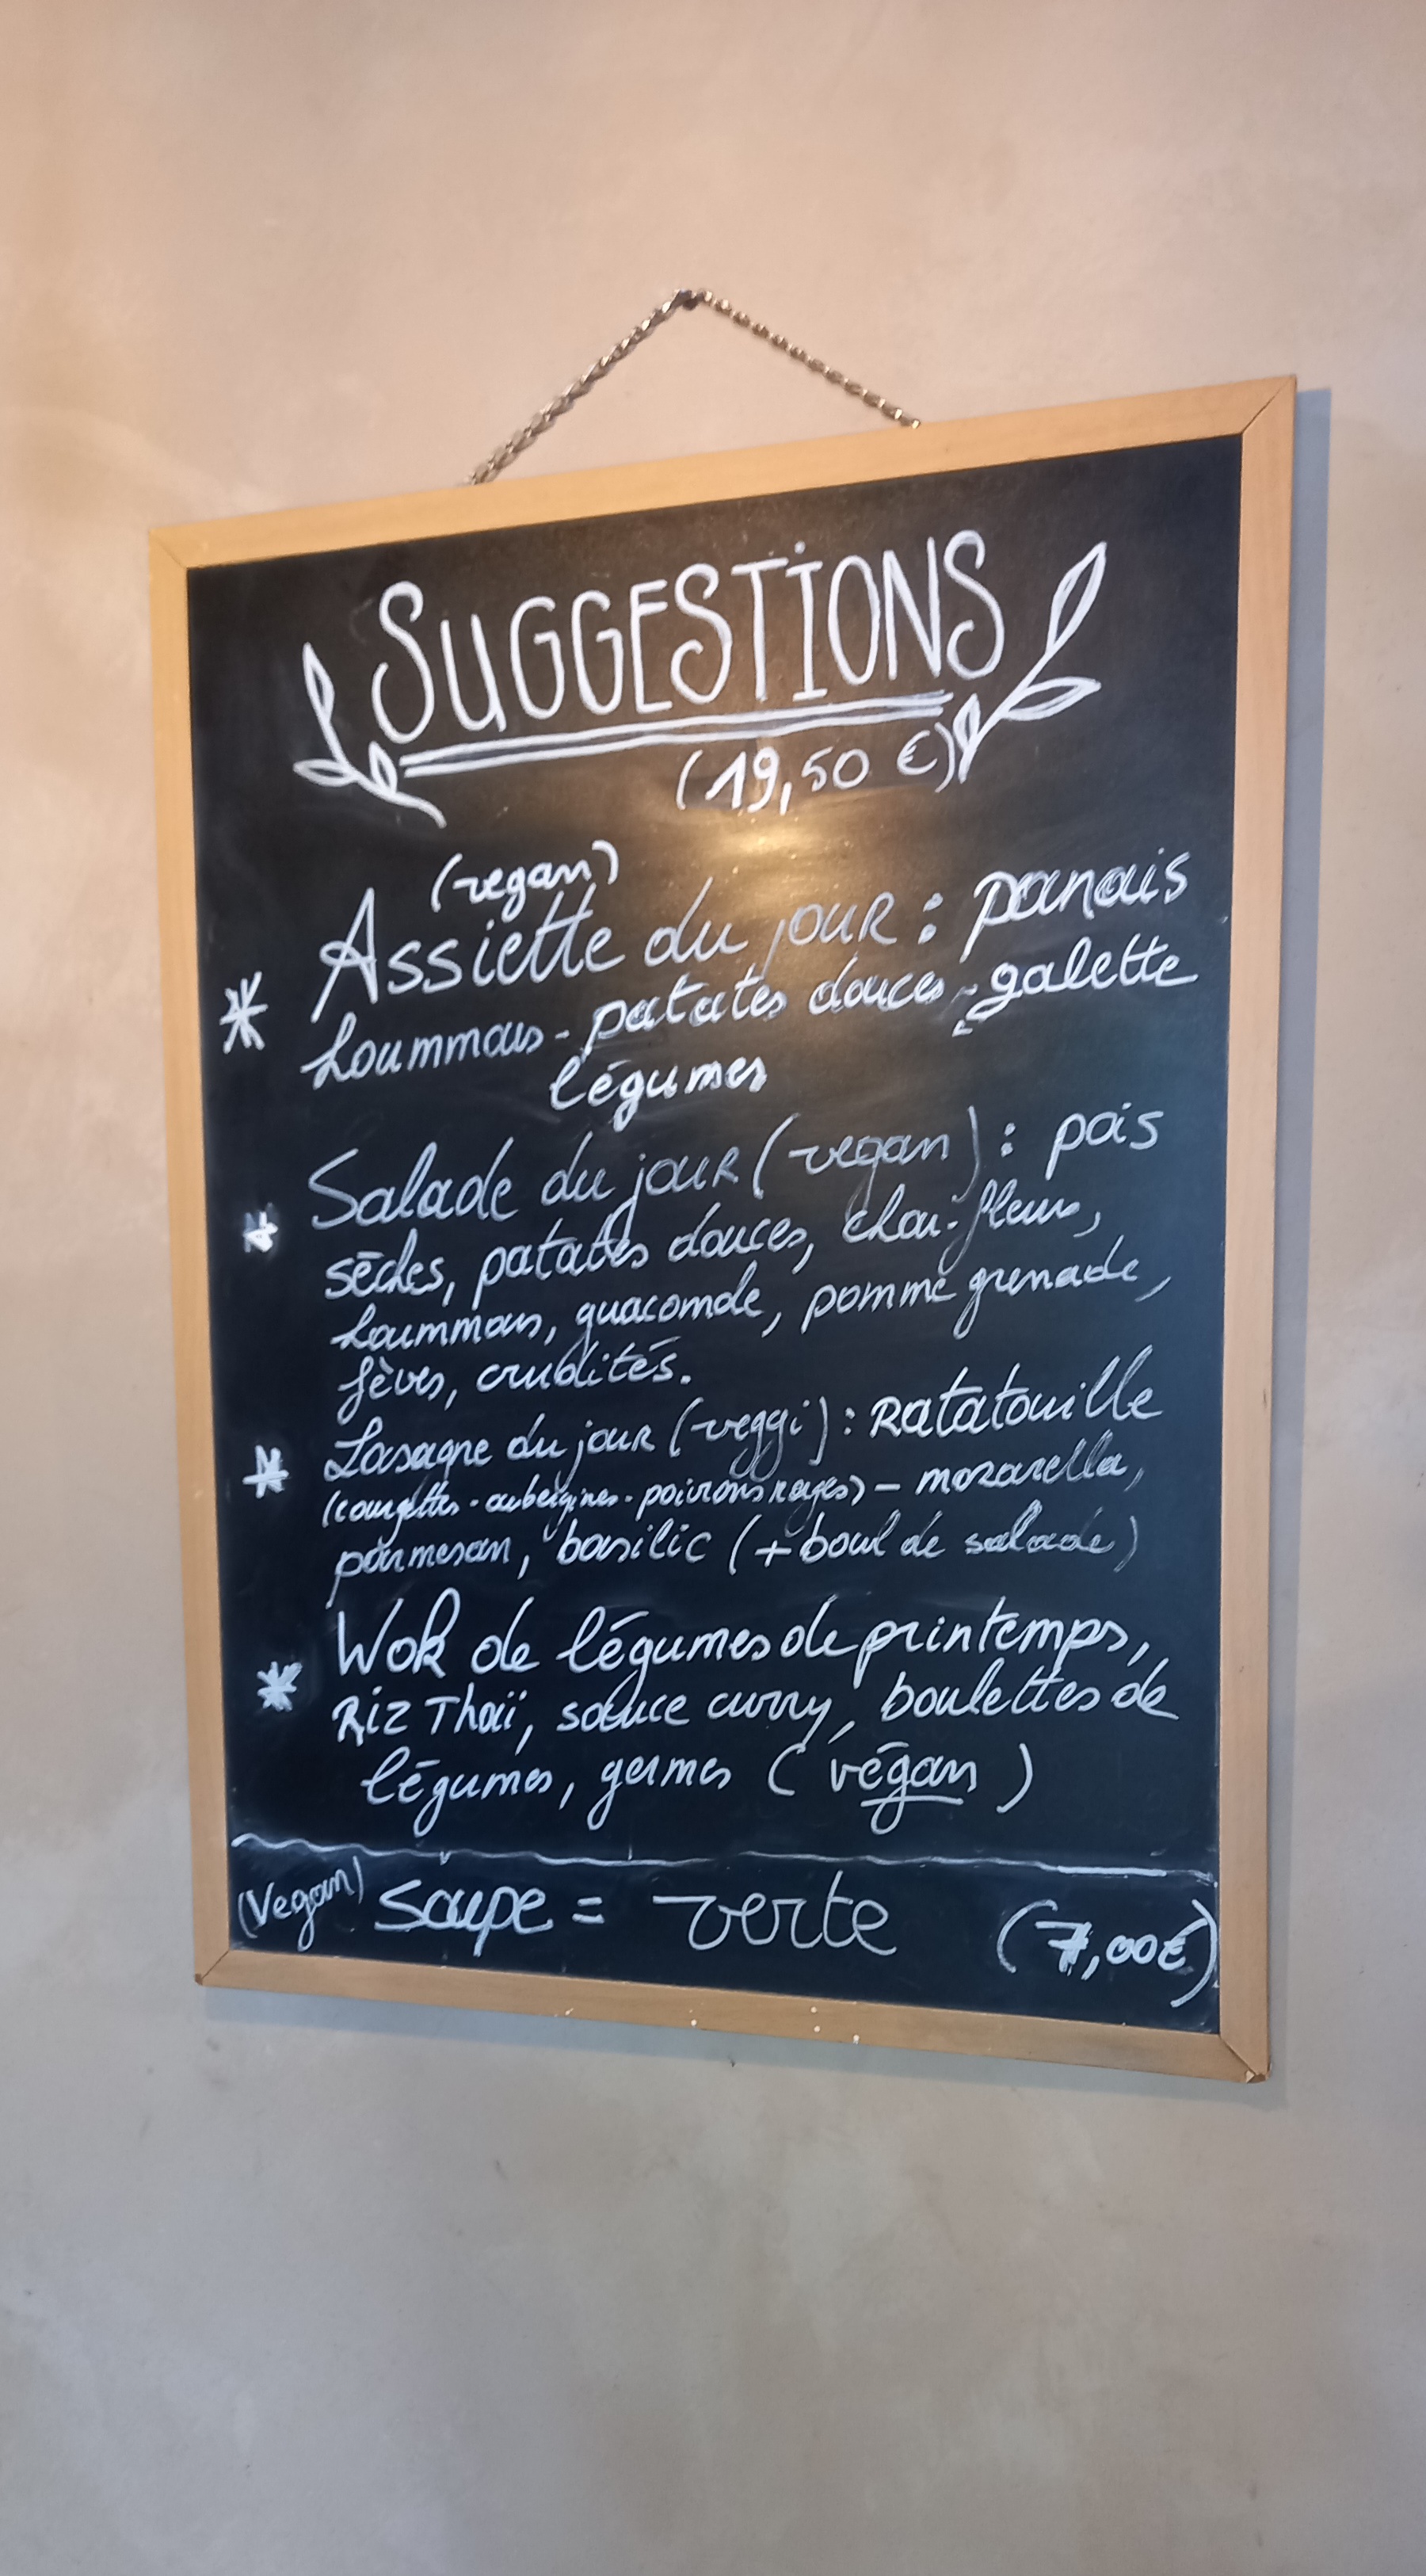 SUGGESTIONS
(19,50 €)
(vegan)
* Assiette du jour : panais
hoummous - patates douces - galette
légumes
* Salade du jour (vegan) : pois
sèches, patates douces, chou-fleurs,
hoummous, guacomole, pomme grenade,
fèves, crudités.
* Lasagne du jour (veggi) : Ratatouille
(courgettes - aubergines - poivrons rouges) - mozarella,
parmesan, basilic (+ boul de salade)
* Wok de légumes de printemps,
Riz Thaï, sauce curry, boulettes de
légumes, germes (végan)
(Vegan) Soupe = verte (7,00€)